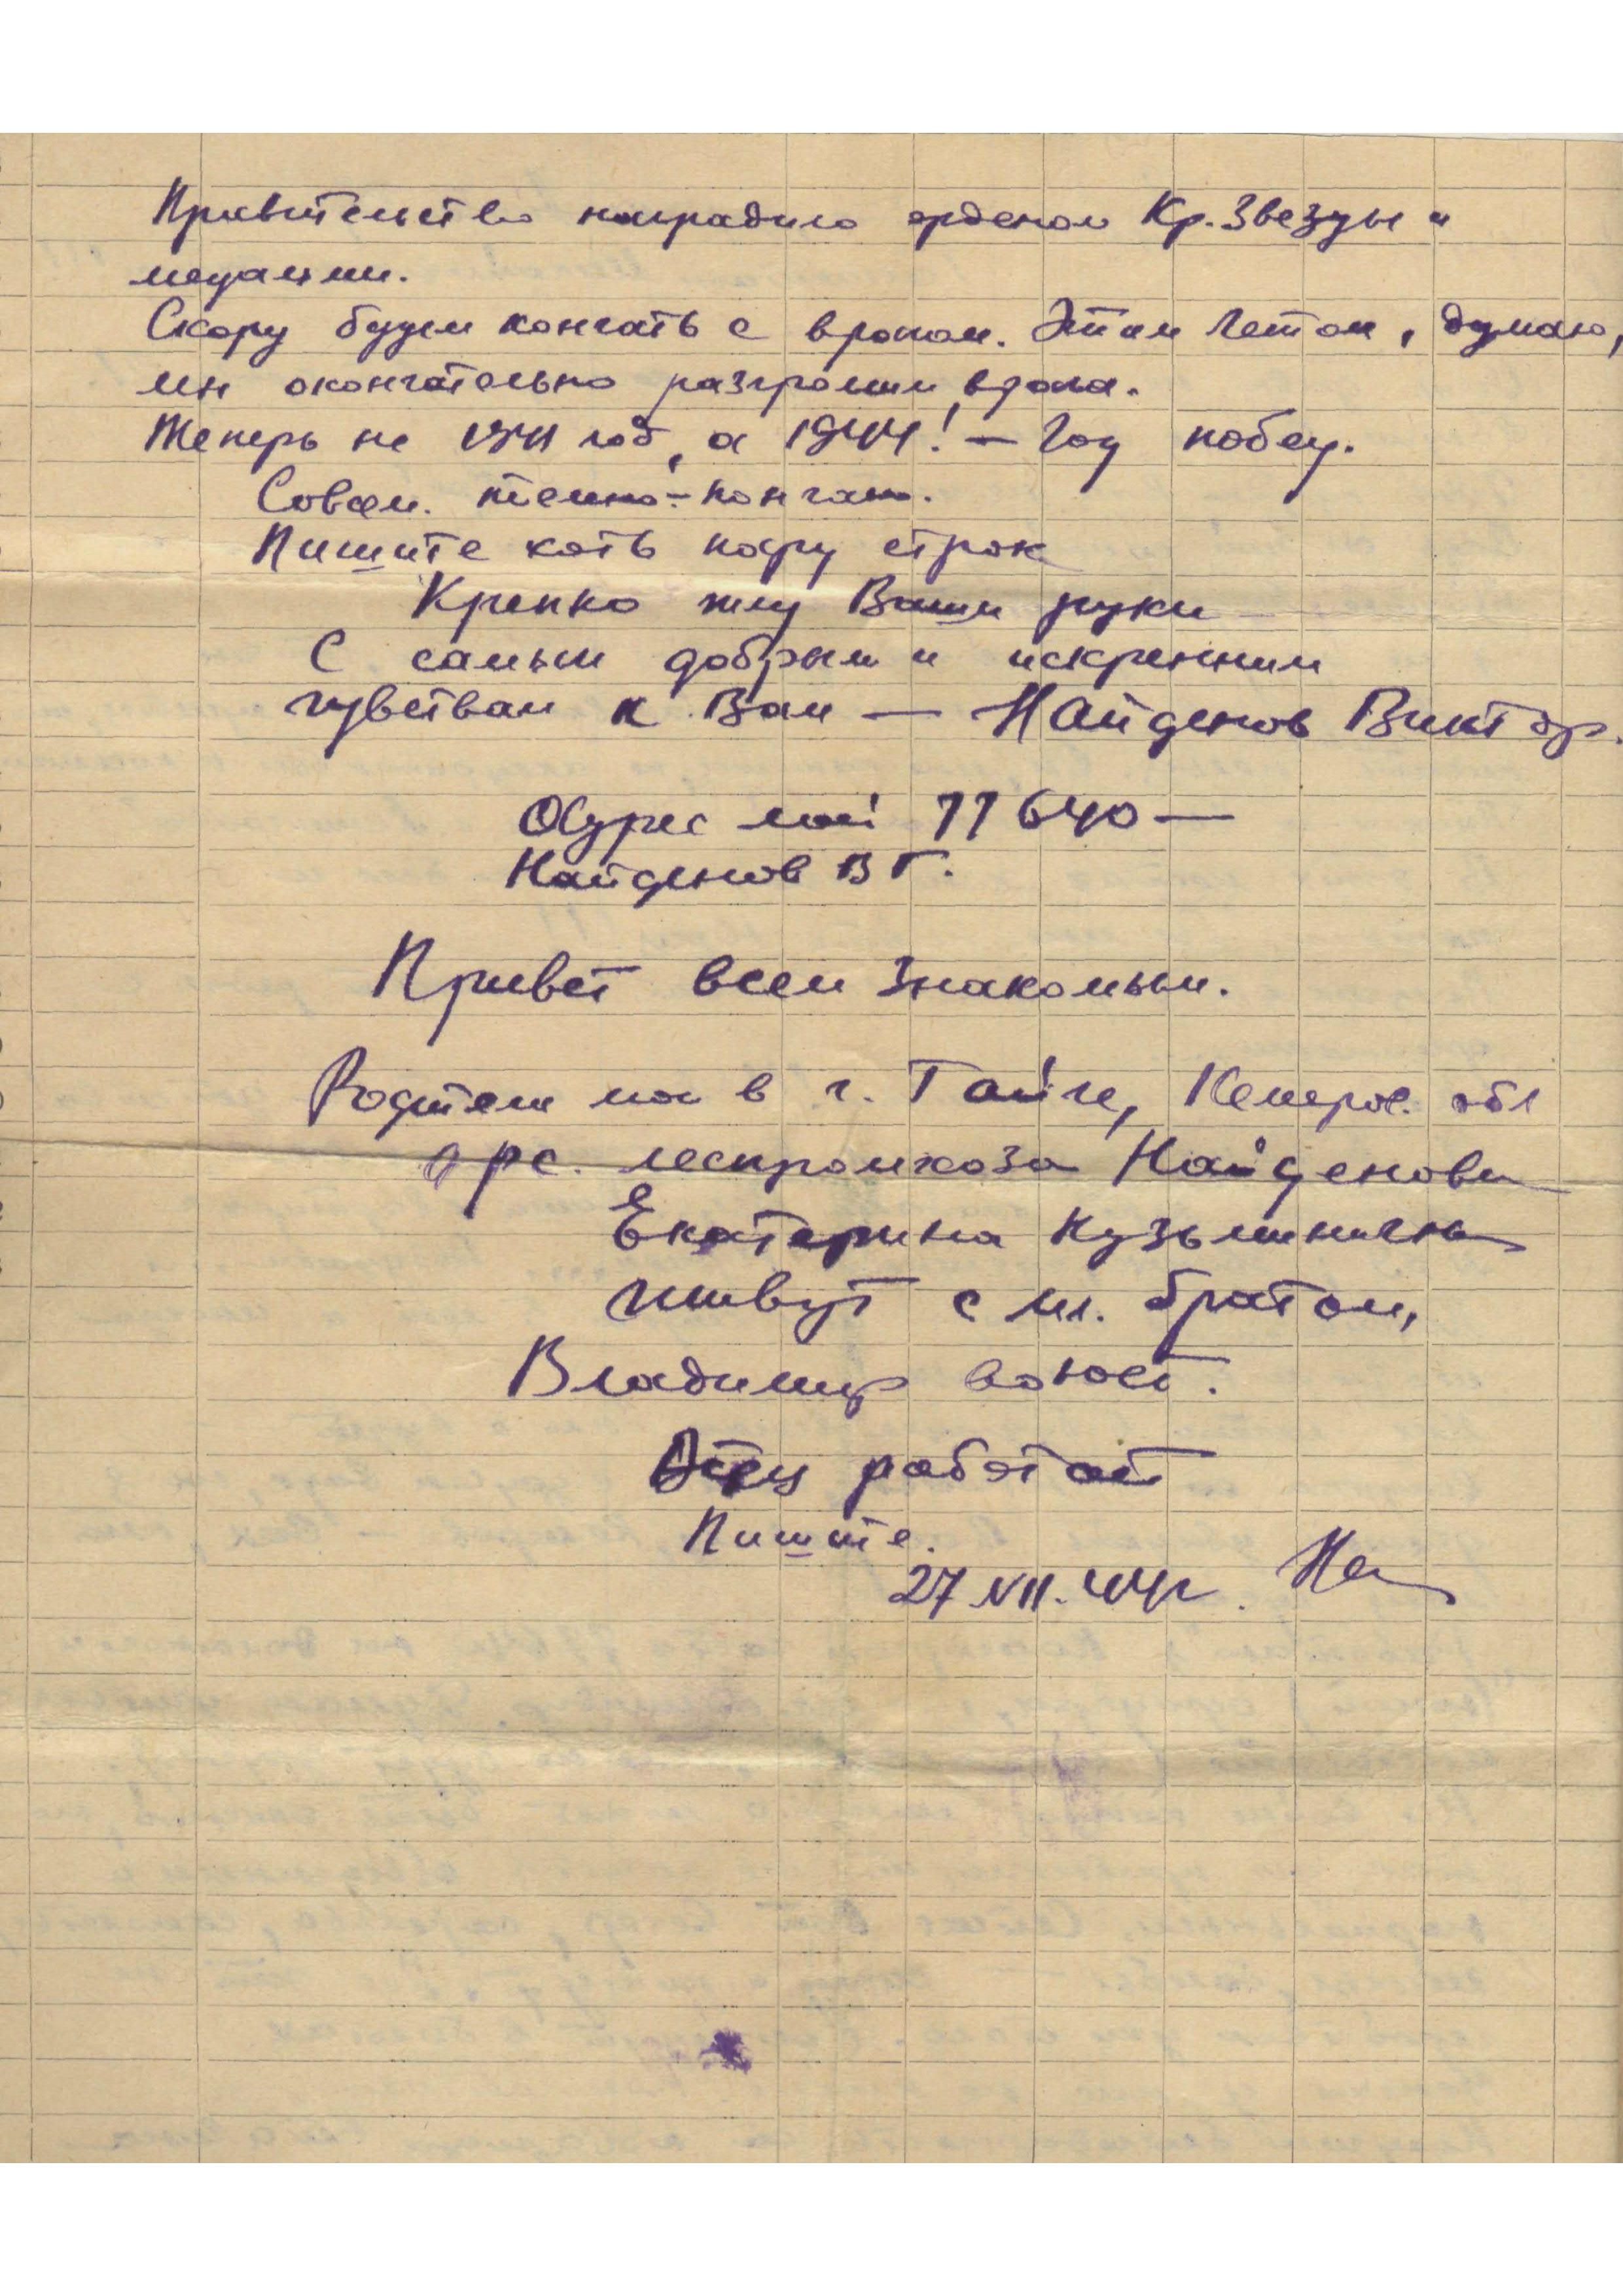 Правительство наградило орденом Кр. Звезды и
медалями.
Скоро будем кончать с врагом. Этим летом, думаю,
мы окончательно разгромим врага.
Теперь не 1941 год, а 1944! — Год побед.
Совсем темно — кончаю.
Пишите хоть пару строк
Крепко жму Ваши руки
С самым добрым и искренним
чувствам к Вам — Найденов Виктор.
Адрес мой 77640 —
Найденов В Г.
Привет всем знакомым.
Родители мои в г. Тайге, Кемеров. обл
орс. леспромхоза Найденова
Екатерина Кузьминична
живут с мл. братом,
Владимир воюет.
Отец работает
Пишите.
27.VII.44г. На